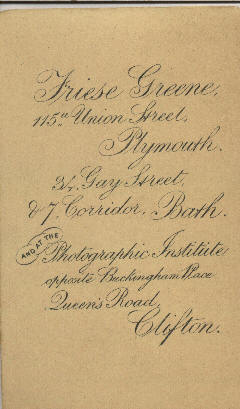 Friese Greene,
115a Union Street,
Plymouth.
34, Gay Street,
& 7, Corridor, Bath.
AND AT THE
Photographic Institute
opposite Buckingham Place
Queen's Road,
Clifton.